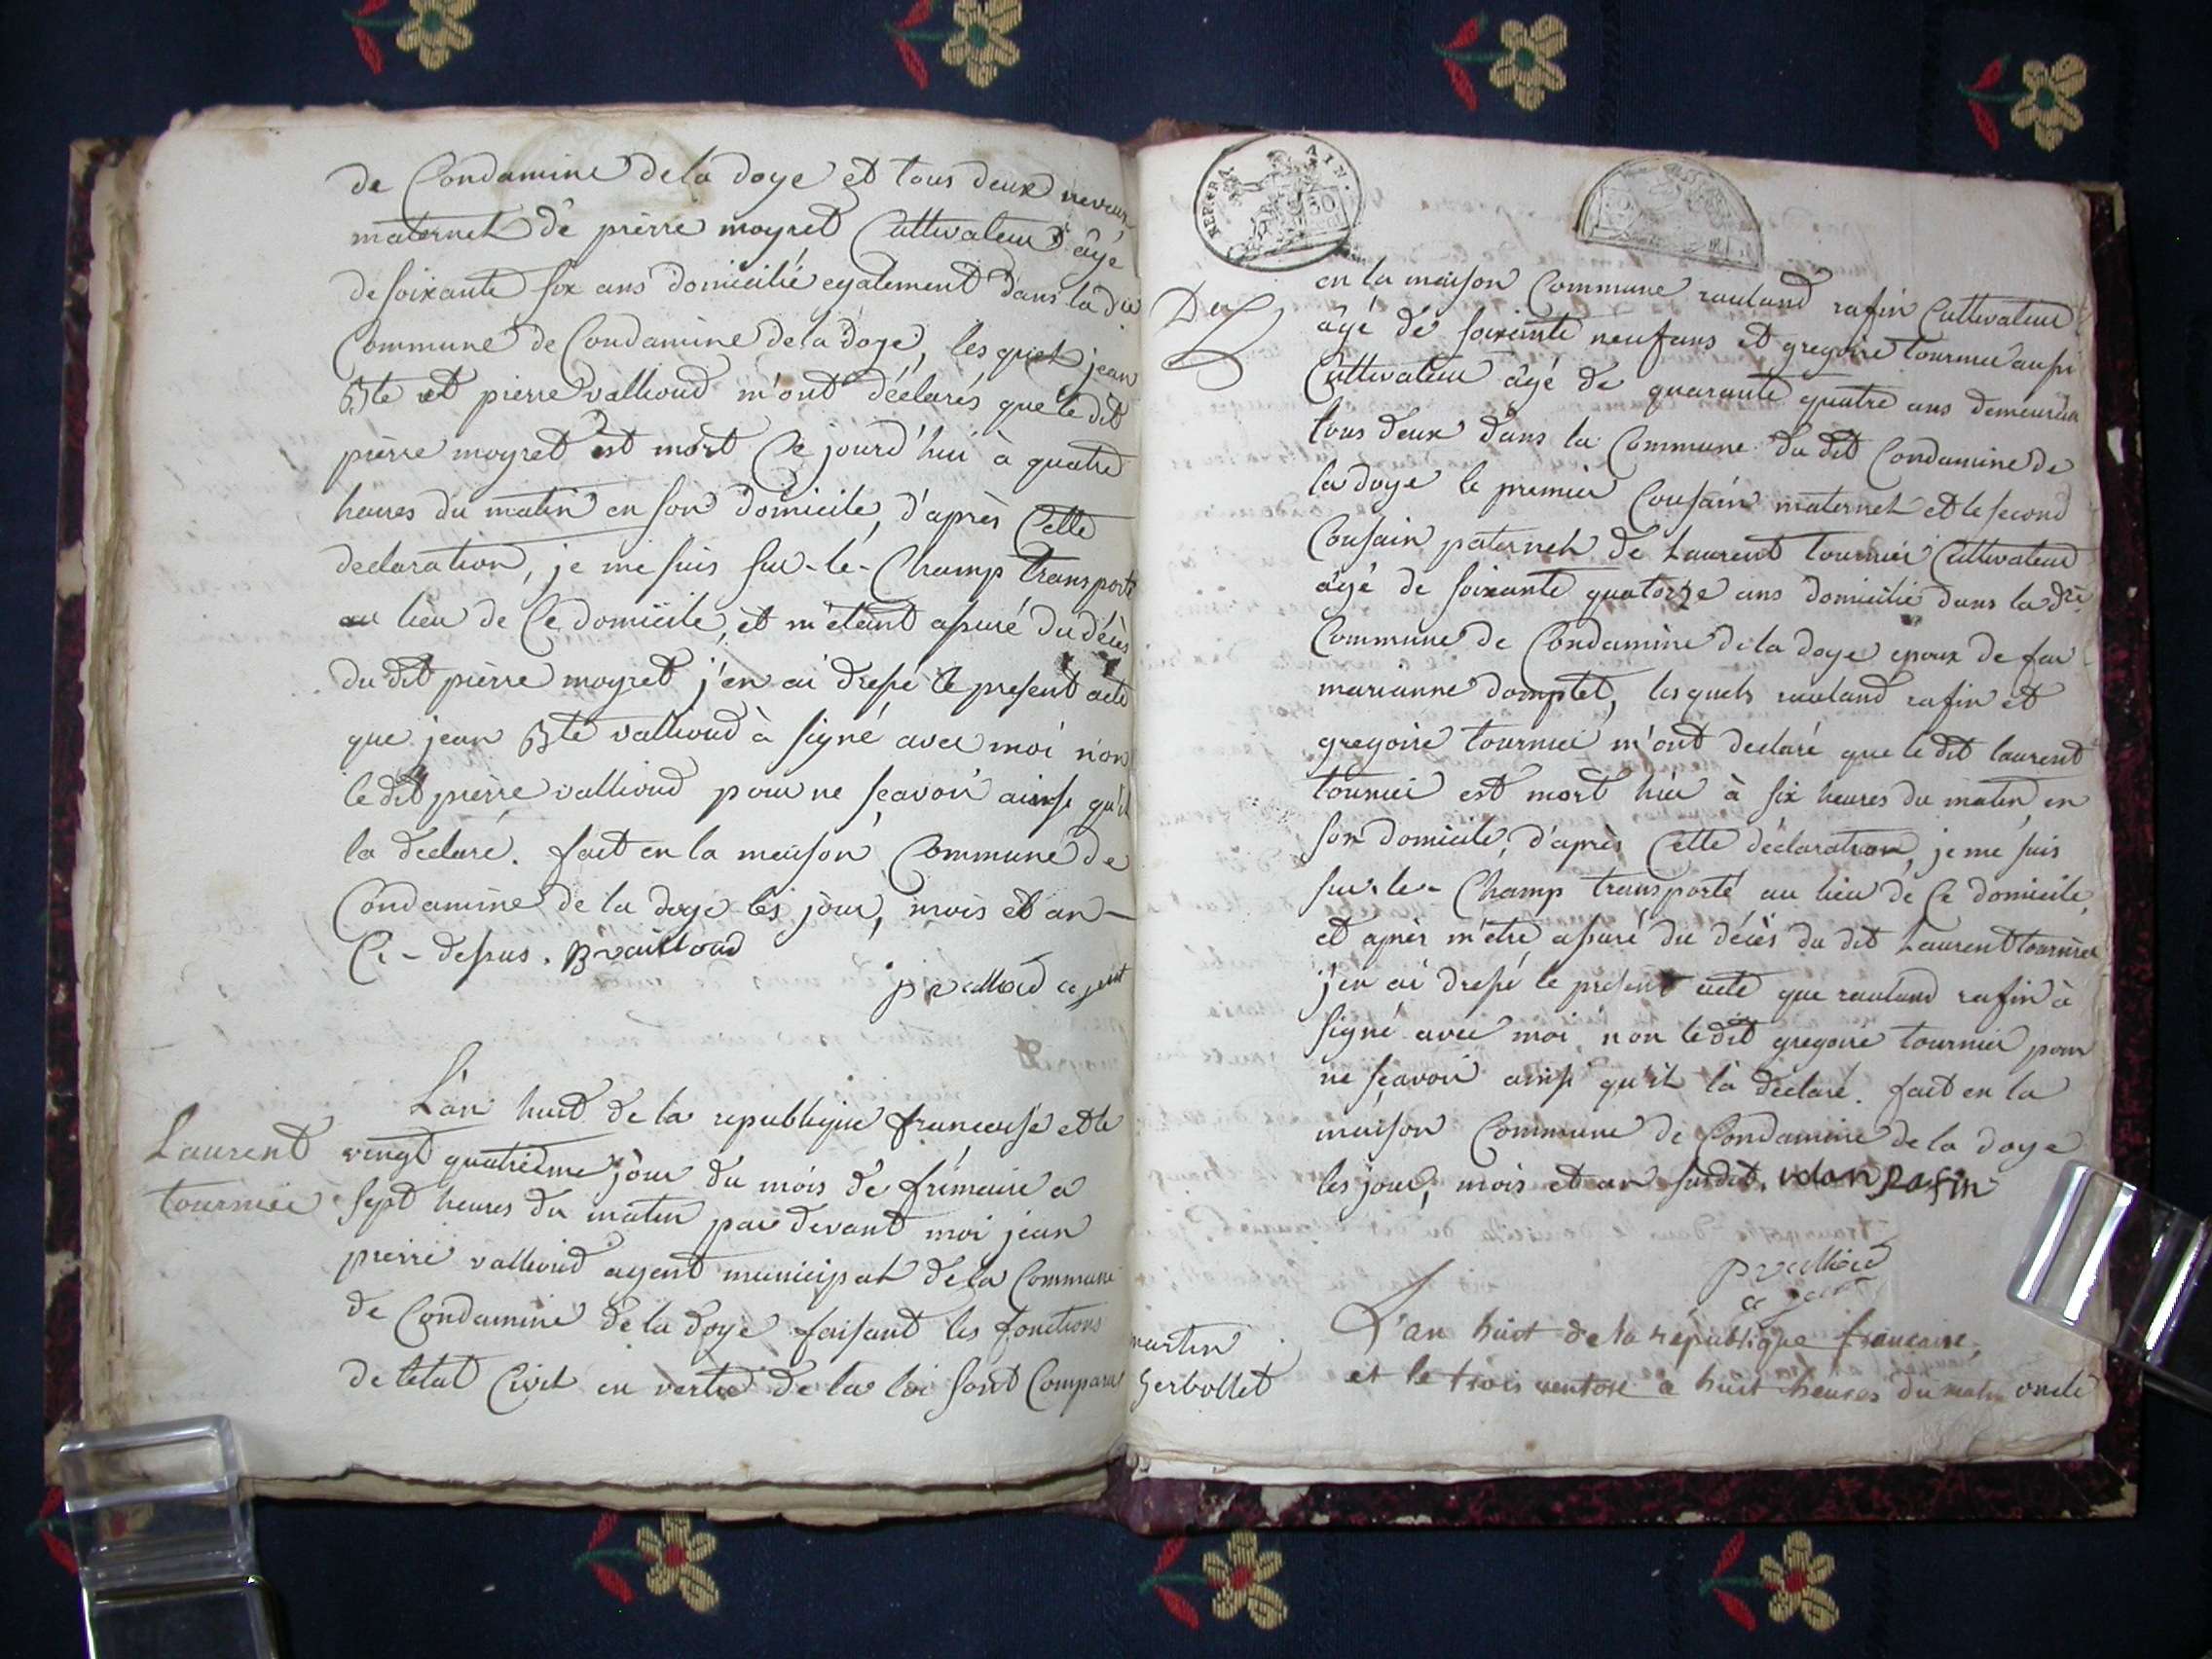 de Condamine de la doye et tous deux neveux
maternel de pierre moyret Cultivateur âgé
de soixante six ans domicilié egalement dans la d.e
Commune de Condamine de la doye, les quels jean
Bte et pierre vallioud m'ont déclarés que le dit
pierre moyret est mort Ce jourd'hui à quatre
heures du matin en son domicile, d'après Cette
declaration, je me suis sur-le-Champ transporté
au lieu de Ce domicile, et m'étant assuré du décès
du dit pierre moyret j'en ai dressé le present acte
que jean Bte vallioud à signé avec moi non
le dit pierre vallioud pour ne sçavoir ainsi qu'il
la declaré. fait en la maison Commune de
Condamine de la doye les jour, mois et an
Ci-dessus. B vallioud
p vallioud agent
Laurent
tournier
L'an huit de la republique francaise et le
vingt quatrieme jour du mois de frimaire a
sept heures du matin par devant moi jean
pierre vallioud agent municipal de la Commune
de Condamine de la doye faisant les fonctions
de l'etat Civil en vertu de la loi sont Comparus
REP. FRA. AIN.
50
en la maison Commune rauland rafin Cultivateur
âgé de soixante neuf ans et gregoire tournier aussi
Cultivateur âgé de quarante quatre ans demeuran
tous deux dans la Commune du dit Condamine de
la doye le premier Cousain maternel et le second
Cousain paternel de Laurent tournier Cultivateur
âgé de soixante quatorze ans domicilié dans la dte
Commune de Condamine de la doye epoux de feu
marianne domptet, les quels rauland rafin et
gregoire tournier m'ont declaré que le dit laurent
tournier est mort hier à six heures du matin en
son domicile, d'après Cette déclaration, je me suis
sur-le-Champ transporté au lieu de Ce domicile,
et après m'être assuré du décès du dit Laurent tournier
j'en ai dressé le présent acte que rauland rafin à
signé avec moi, non le dit gregoire tournier pour
ne sçavoir ainsi qu'il là declaré. fait en la
maison Commune de Condamine de la doye
les jour, mois et an susdit. rolan Rafin
p vallioud
agent
martin
Gerbollet
L'an huit de la république francaise,
et le trois ventose a huit heures du matin